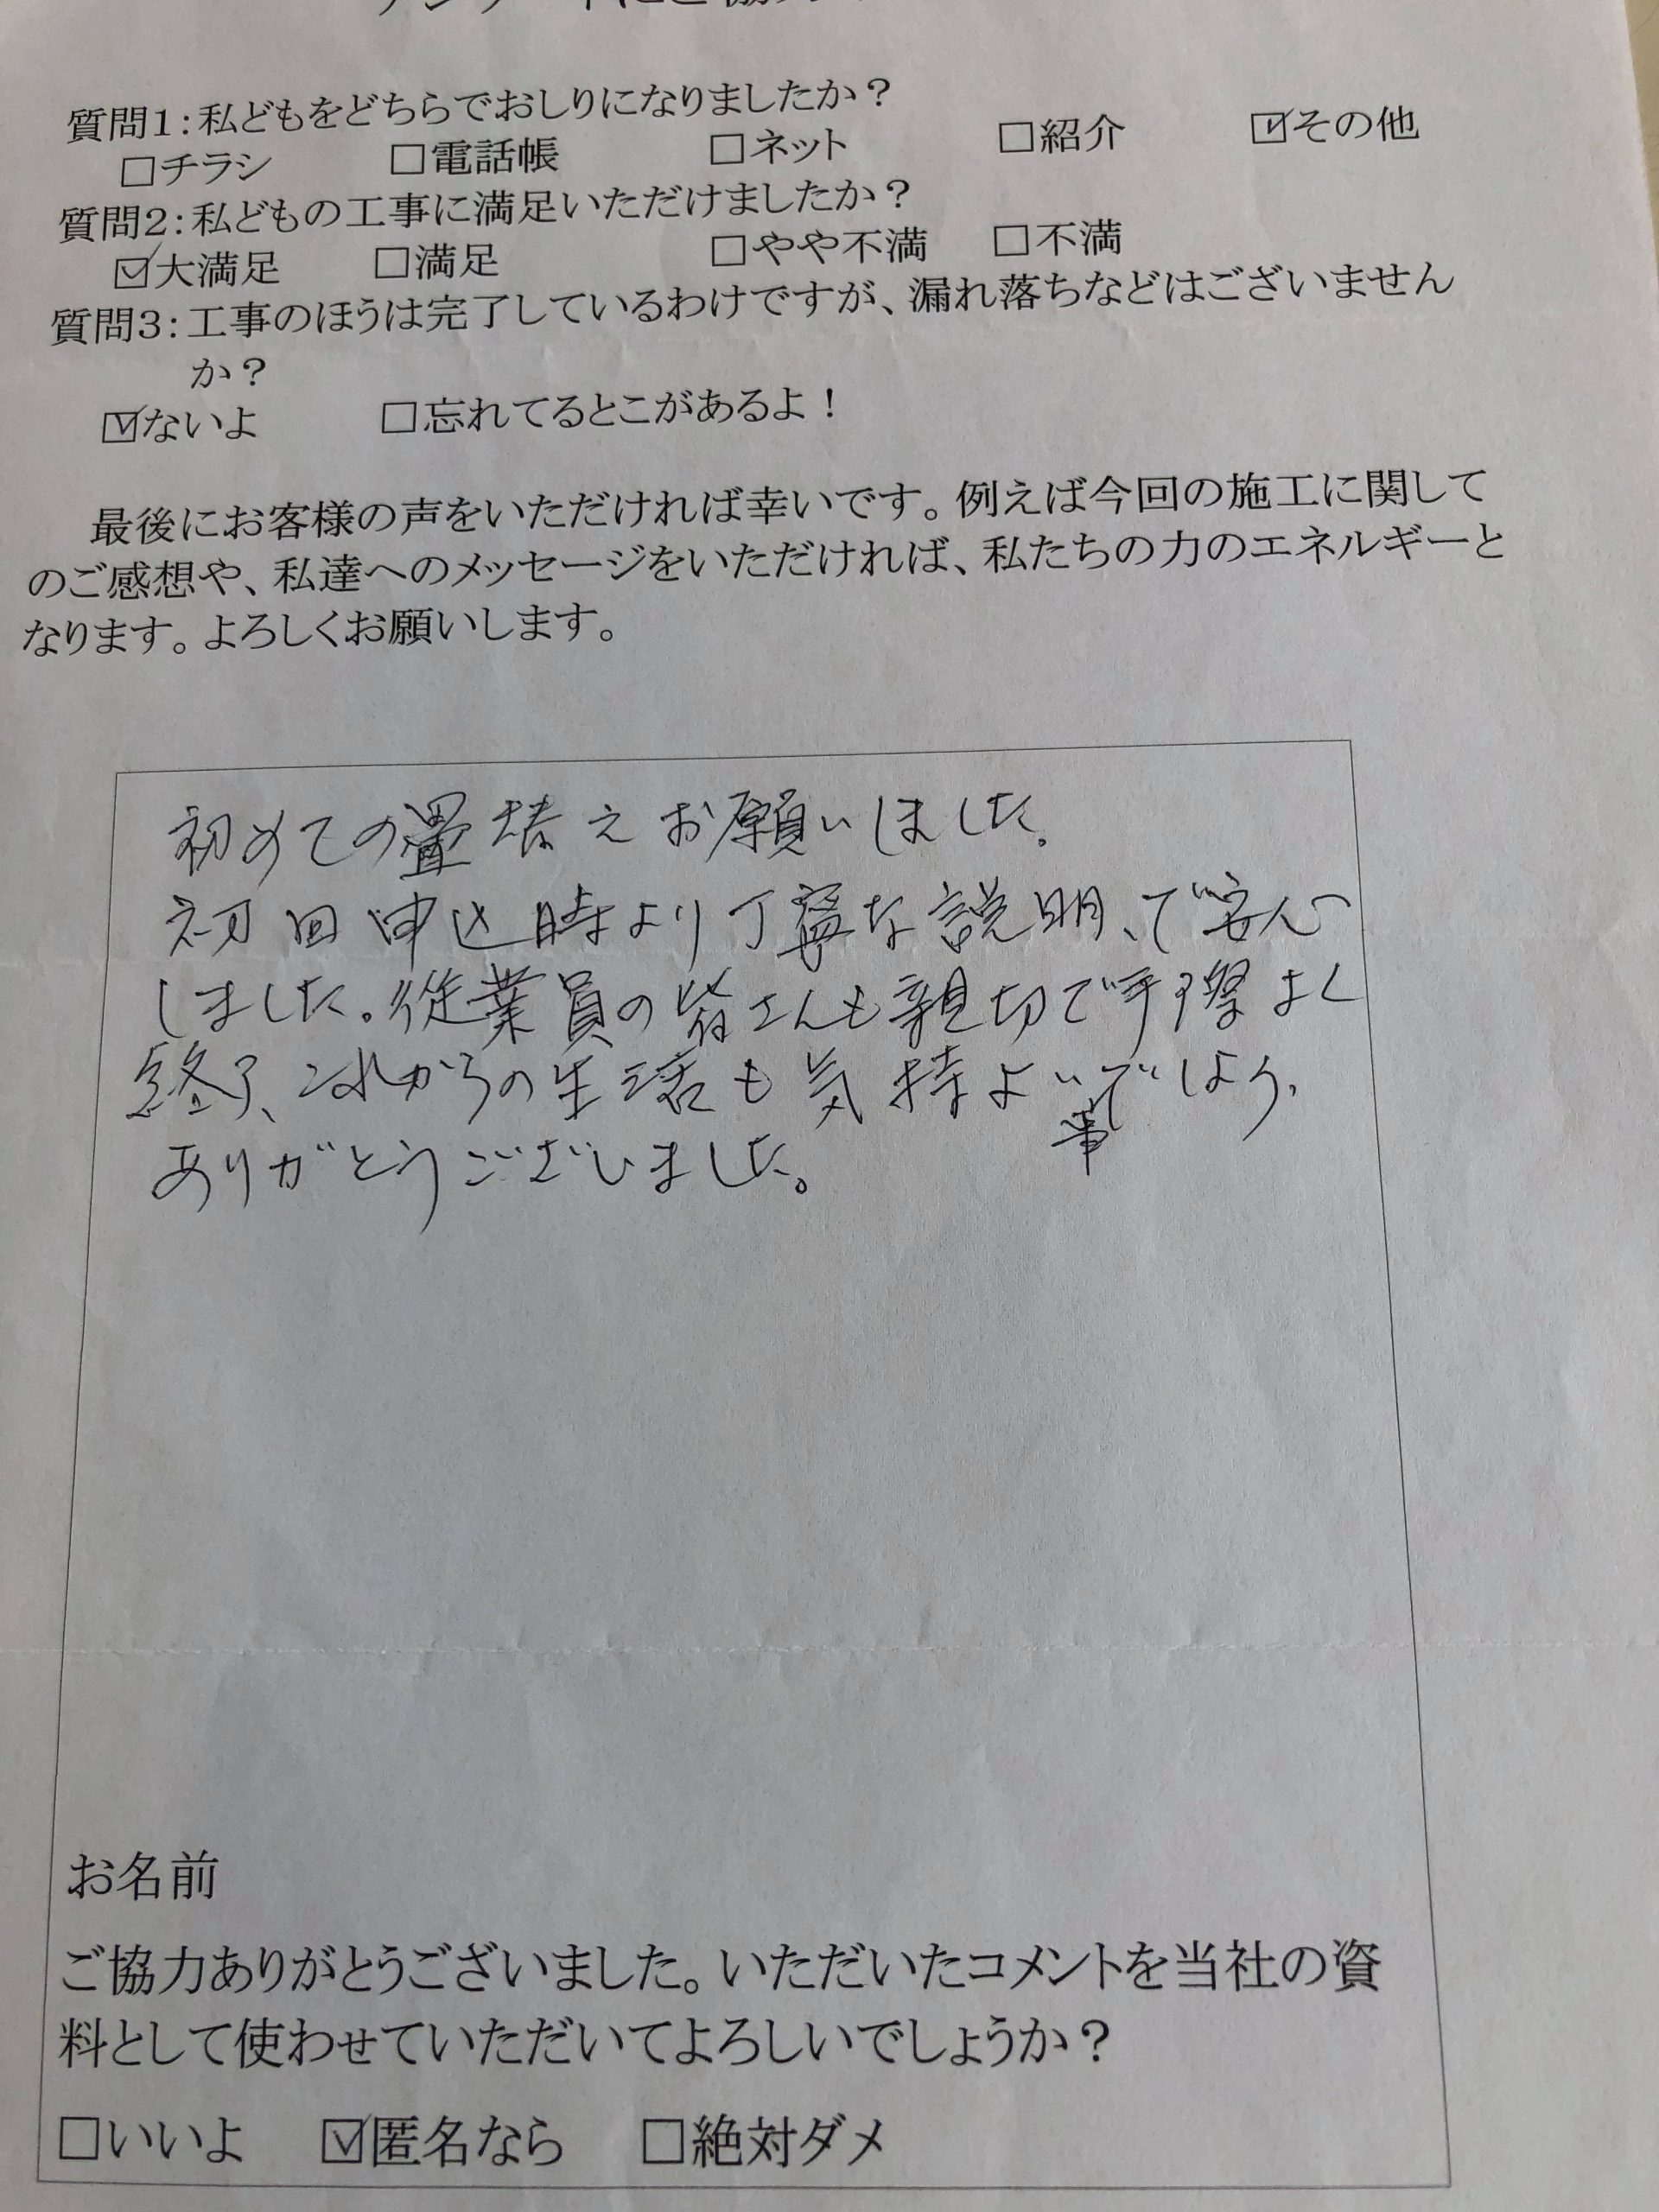 アンケートにご協力
質問1：私どもをどちらでおしりになりましたか？
□チラシ □電話帳 □ネット □紹介 ☑その他
質問2：私どもの工事に満足いただけましたか？
☑大満足 □満足 □やや不満 □不満
質問3：工事のほうは完了しているわけですが、漏れ落ちなどはございません
か？
☑ないよ □忘れてるとこがあるよ！
最後にお客様の声をいただければ幸いです。例えば今回の施工に関して
のご感想や、私達へのメッセージをいただければ、私たちの力のエネルギーと
なります。よろしくお願いします。
初めての畳替えお願いしました。
初回申込時より丁寧な説明、で安心
しました。従業員の皆さんも親切で手際よく
終了、これからの生活も気持よい事でしょう、
ありがとうございました。
お名前
ご協力ありがとうございました。いただいたコメントを当社の資
料として使わせていただいてよろしいでしょうか？
□いいよ ☑匿名なら □絶対ダメ